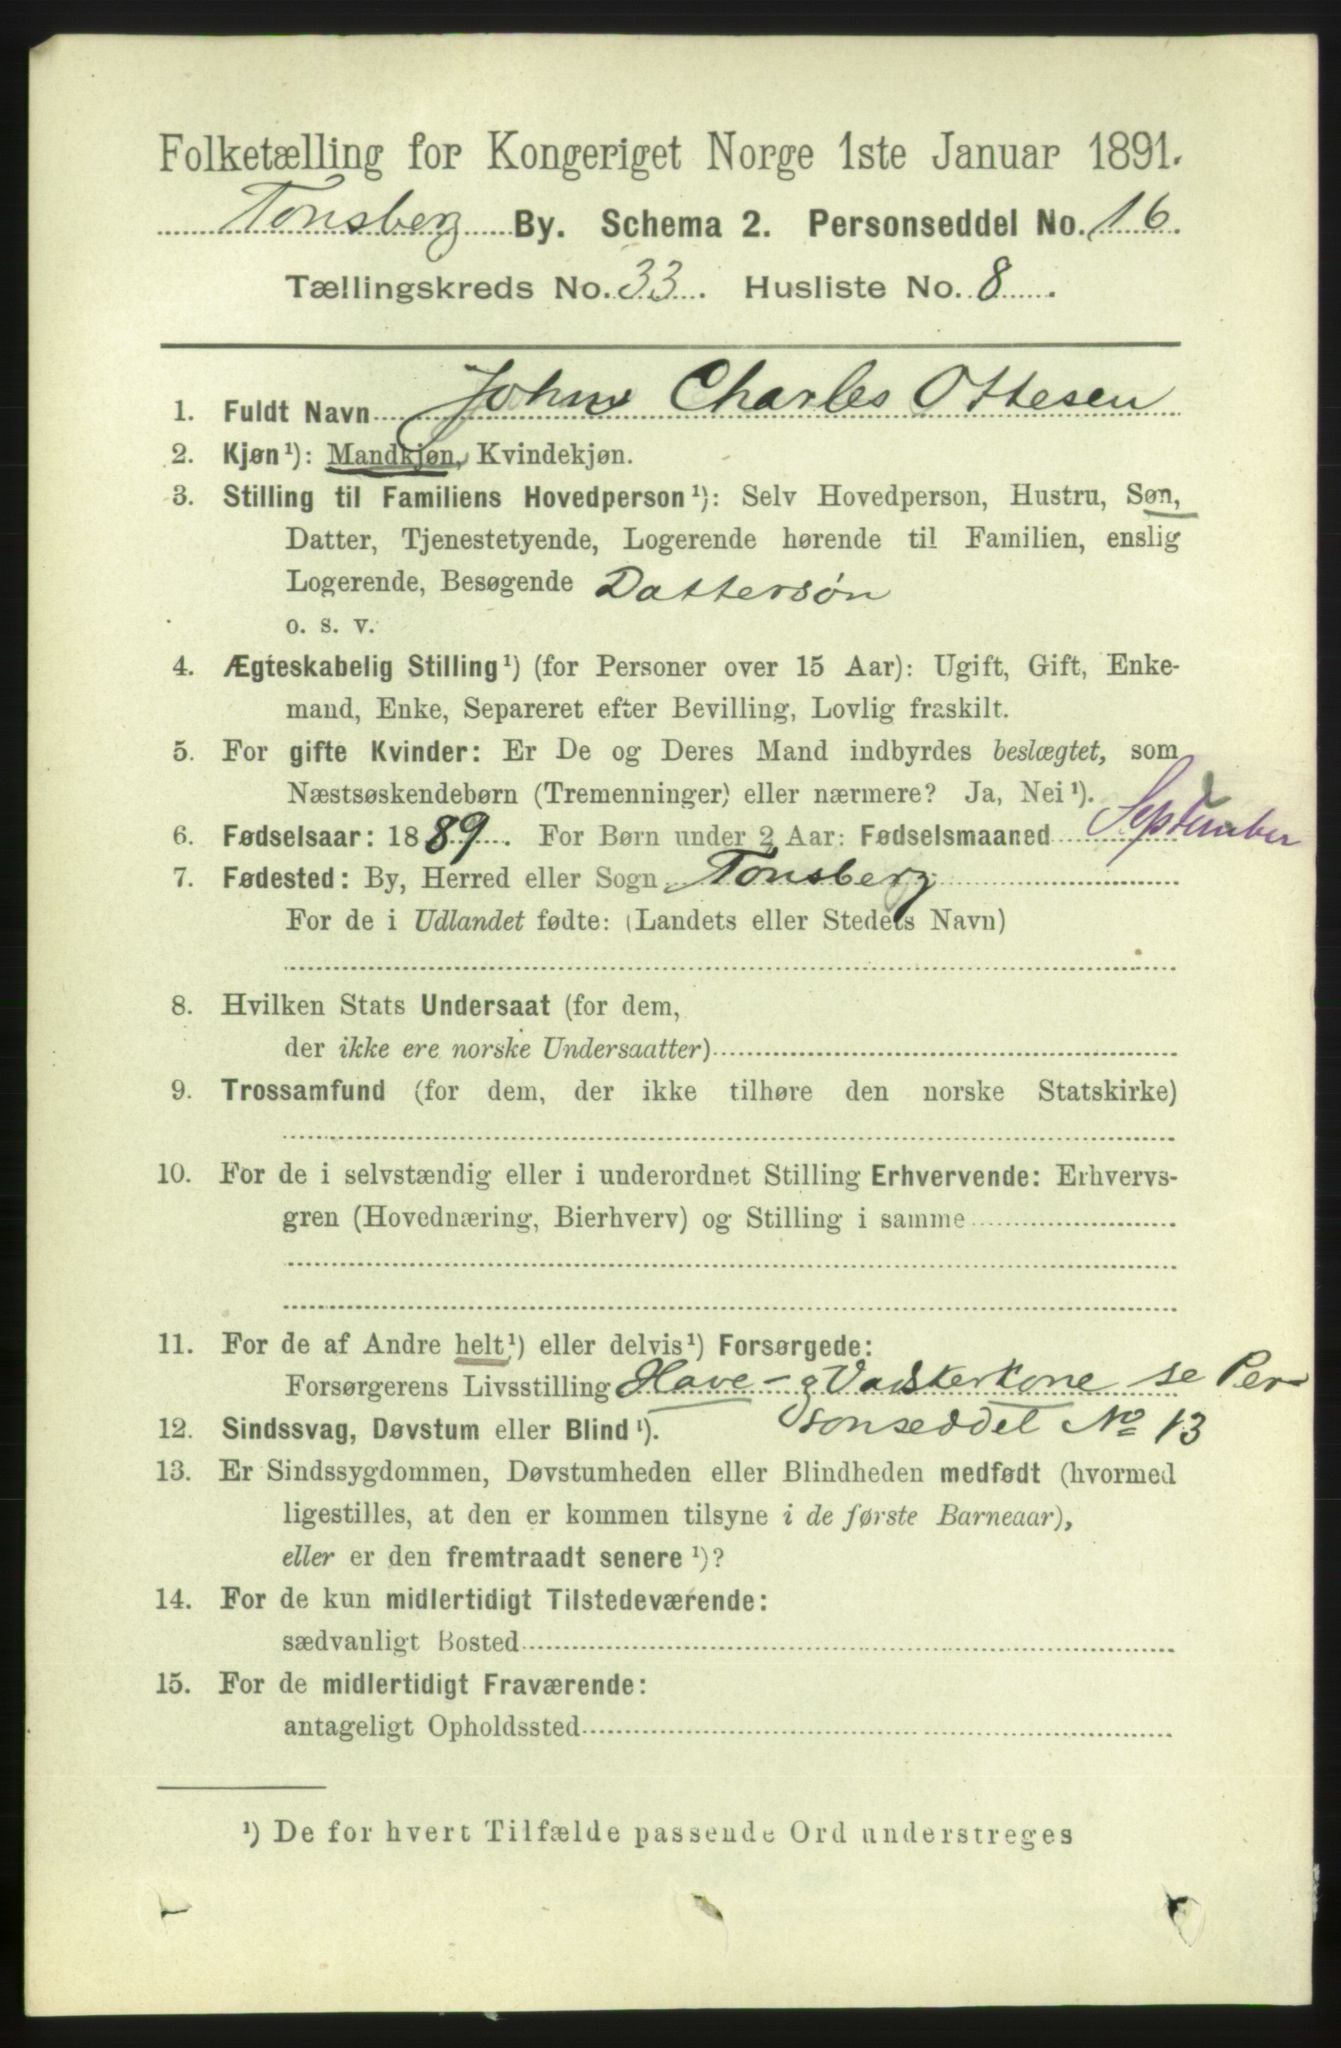 Folketælling for Kongeriget Norge 1ste Januar 1891.
Tonsberg By. Schema 2. Personseddel No. 16.
Tællingskreds No. 33. Husliste No. 8.
1. Fuldt Navn John Charles Ottesen
2. Kjøn¹): Mandkjøn, Kvindekjøn.
3. Stilling til Familiens Hovedperson¹): Selv Hovedperson, Hustru, Søn,
Datter, Tjenestetyende, Logerende hørende til Familien, enslig
Logerende, Besøgende Dattersøn
o. s. v.
4. Ægteskabelig Stilling¹) (for Personer over 15 Aar): Ugift, Gift, Enke-
mand, Enke, Separeret efter Bevilling, Lovlig fraskilt.
5. For gifte Kvinder: Er De og Deres Mand indbyrdes beslægtet, som
Næstsøskendebørn (Tremenninger) eller nærmere? Ja, Nei¹).
6. Fødselsaar: 1889. For Børn under 2 Aar: Fødselsmaaned September
7. Fødested: By, Herred eller Sogn Tonsberg
For de i Udlandet fødte: (Landets eller Stedets Navn)
8. Hvilken Stats Undersaat (for dem,
der ikke ere norske Undersaatter)
9. Trossamfund (for dem, der ikke tilhøre den norske Statskirke)
10. For de i selvstændig eller i underordnet Stilling Erhvervende: Erhvervs-
gren (Hovednæring, Bierhverv) og Stilling i samme
11. For de af Andre helt¹) eller delvis¹) Forsørgede:
Forsørgerens Livsstilling Have- og Vadskerkone se Per-
sonseddel No 13
12. Sindssvag, Døvstum eller Blind¹).
13. Er Sindssygdommen, Døvstumheden eller Blindheden medfødt (hvormed
ligestilles, at den er kommen tilsyne i de første Barneaar),
eller er den fremtraadt senere¹)?
14. For de kun midlertidigt Tilstedeværende:
sædvanligt Bosted
15. For de midlertidigt Fraværende:
antageligt Opholdssted
¹) De for hvert Tilfælde passende Ord understreges